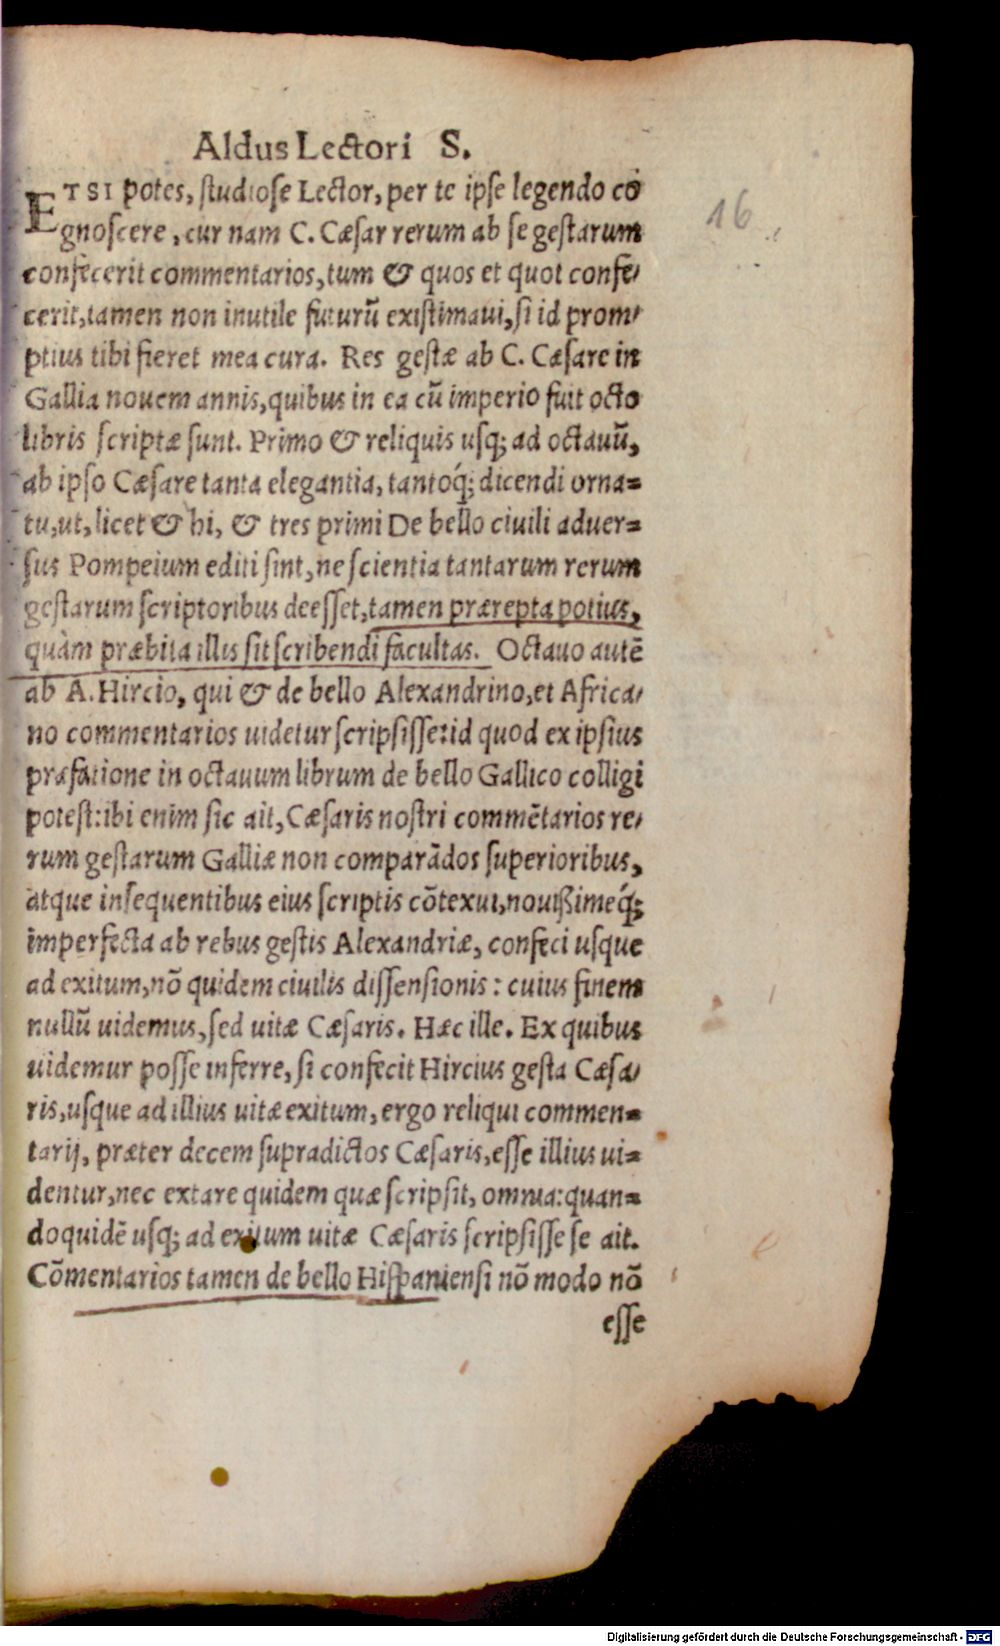 Aldus Lectori S.
ETSI potes, studiose Lector, per te ipse legendo co
gnoscere, cur nam C. Cæsar rerum ab se gestarum
confecerit commentarios, tum & quos et quot confe-
cerit, tamen non inutile futurū existimaui, si id prom-
ptius tibi fieret mea cura. Res gestæ ab C. Cæsare in
Gallia nouem annis, quibus in ea cū imperio fuit octo
libris scriptæ sunt. Primo & reliquis usq; ad octauū,
ab ipso Cæsare tanta elegantia, tantóq́; dicendi orna-
tu, ut, licet & hi, & tres primi De bello ciuili aduer-
sus Pompeium editi sint, ne scientia tantarum rerum
gestarum scriptoribus deesset, tamen prærepta potius,
quàm præbita illis sit scribendi facultas. Octauo autē
ab A. Hircio, qui & de bello Alexandrino, et Africa-
no commentarios uidetur scripsisse: id quod ex ipsius
præfatione in octauum librum de bello Gallico colligi
potest: ibi enim sic ait, Cæsaris nostri commētarios re-
rum gestarum Galliæ non comparādos superioribus,
atque insequentibus eius scriptis cōtexui, nouißimeq́;
imperfecta ab rebus gestis Alexandriæ, confeci usque
ad exitum, nō quidem ciuilis dissensionis: cuius finem
nullū uidemus, sed uitæ Cæsaris. Hæc ille. Ex quibus
uidemur posse inferre, si confecit Hircius gesta Cæsa-
ris, usque ad illius uitæ exitum, ergo reliqui commen-
tarij, præter decem supradictos Cæsaris, esse illius ui-
dentur, nec extare quidem quæ scripsit, omnia: quan-
doquidē usq; ad exitum uitæ Cæsaris scripsisse se ait.
Cōmentarios tamen de bello Hispaniensi nō modo nō
esse
16
Digitalisierung gefördert durch die Deutsche Forschungsgemeinschaft - DFG